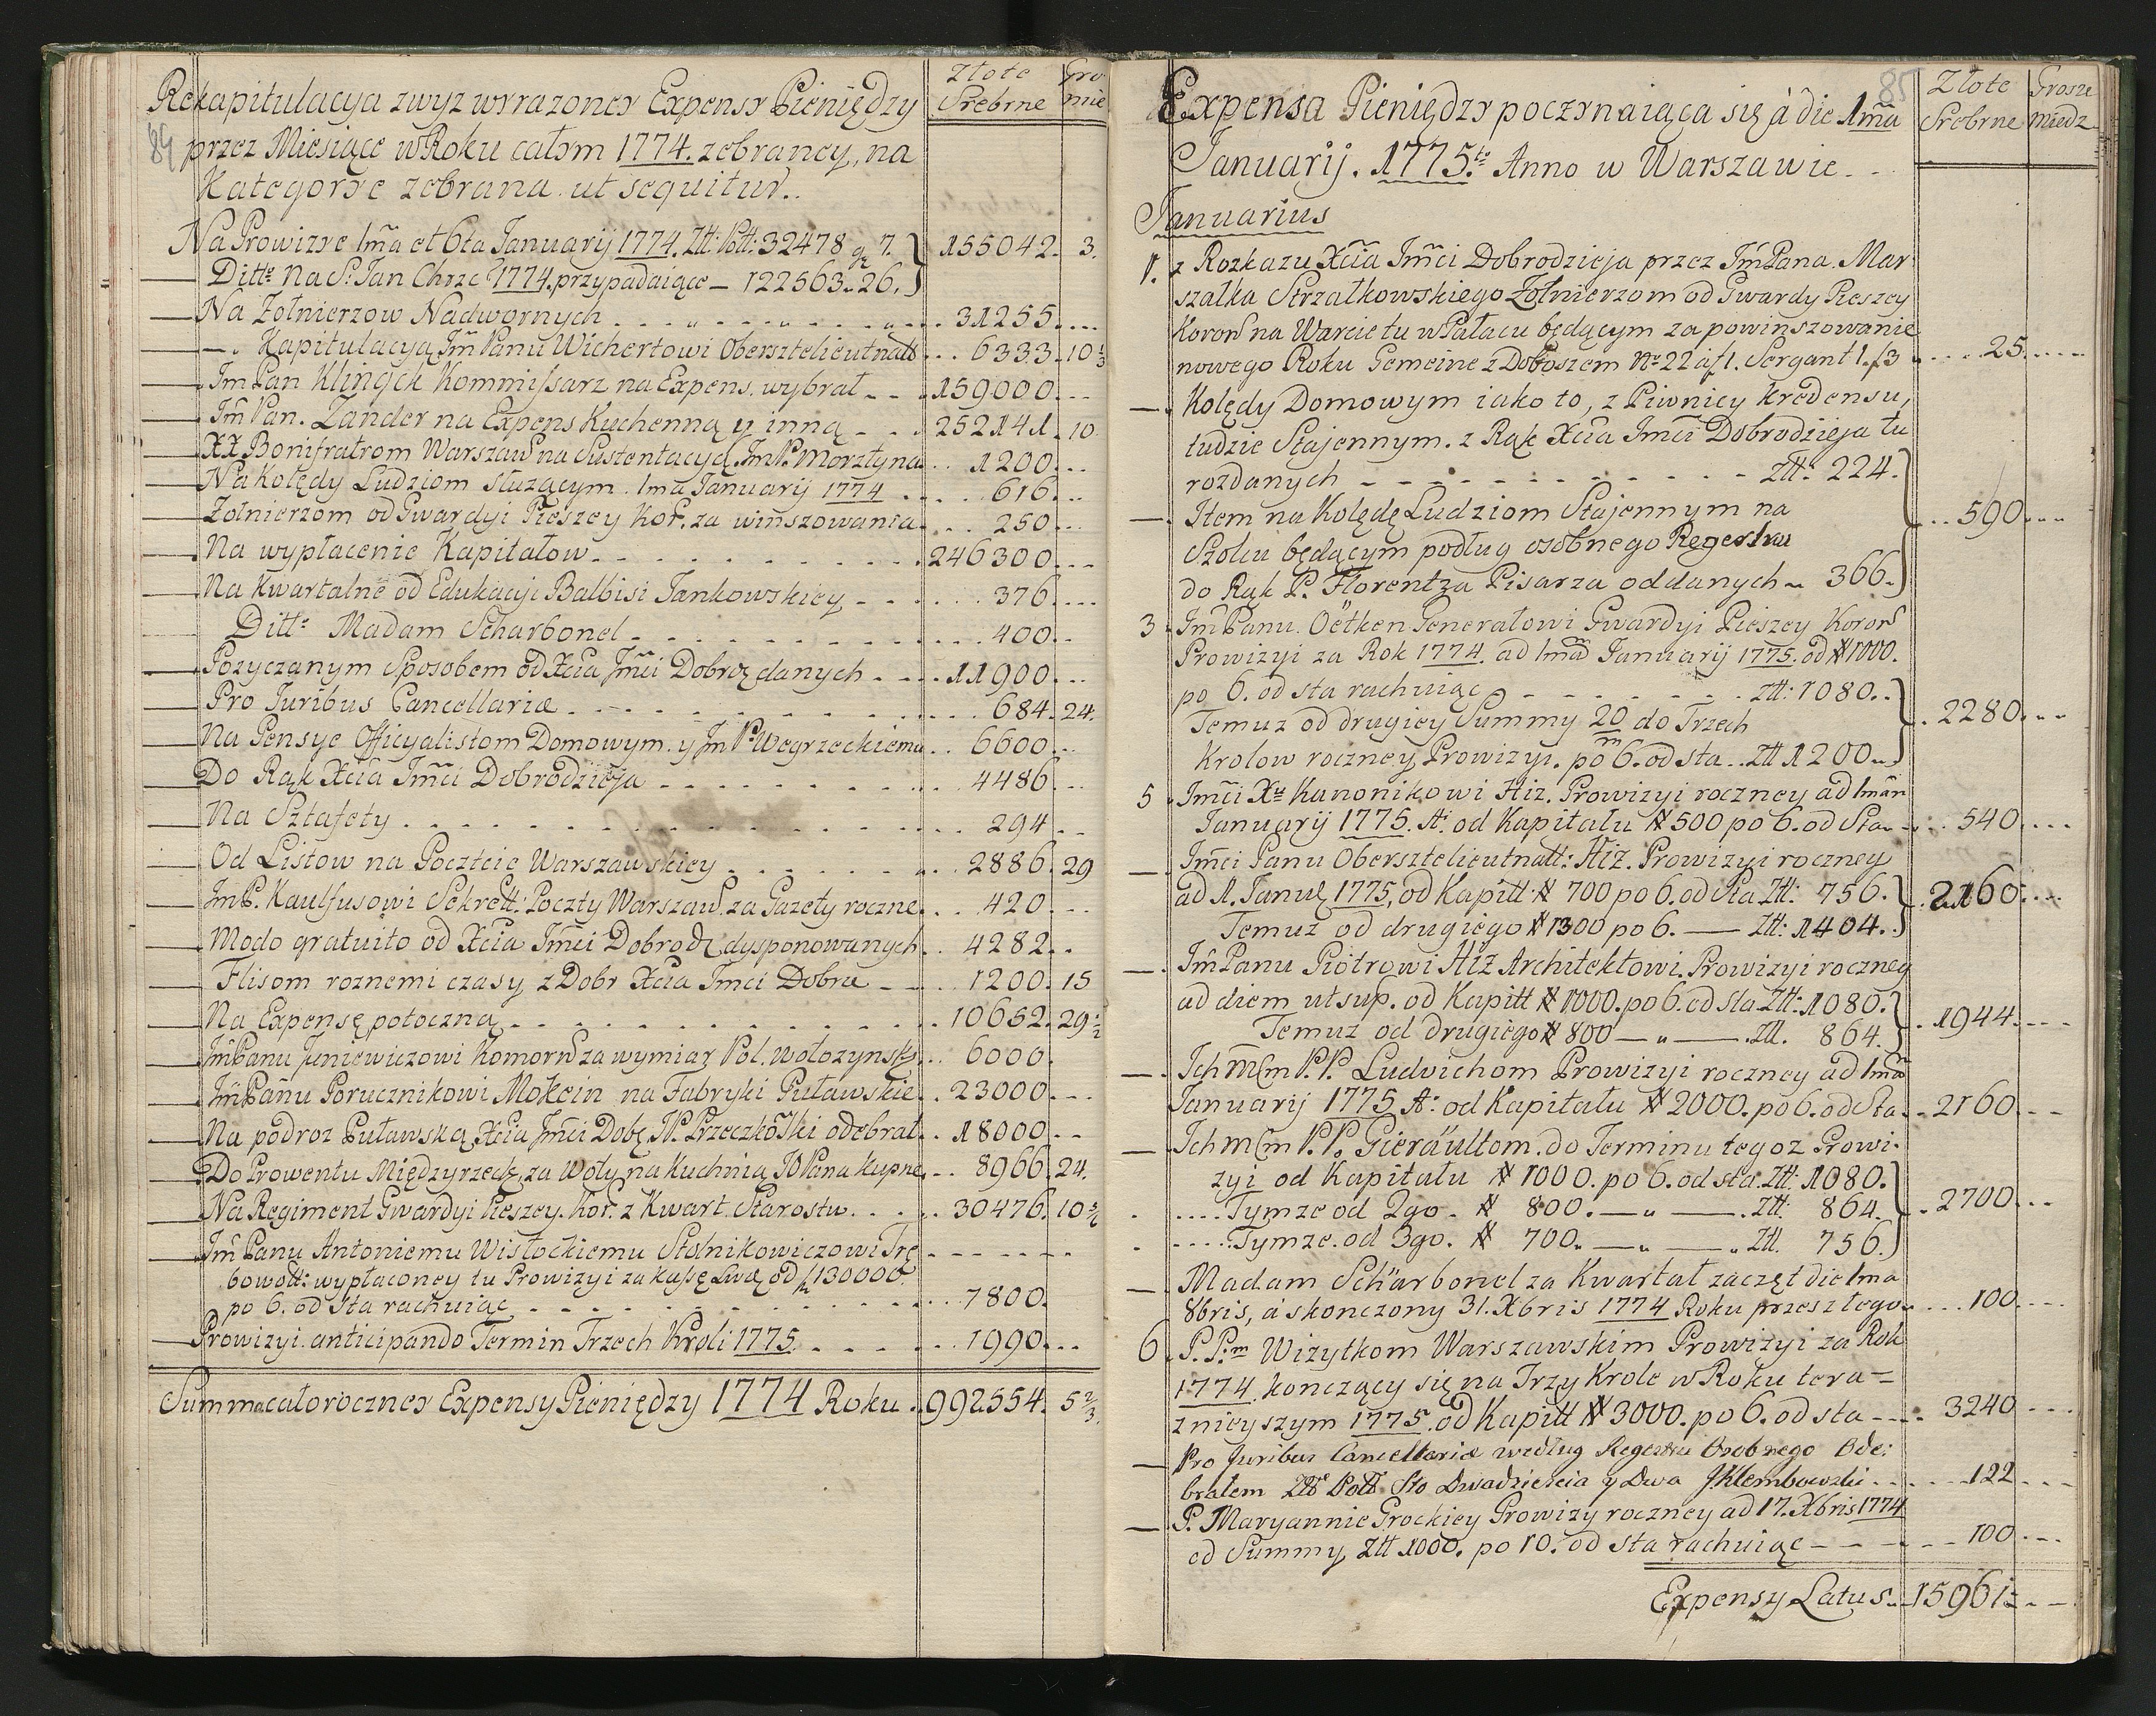 84
Rekapitulacya zwyz wyrazoney Expensy Pieniędzy
Złote Srebrne
Gro mie
przez Miesiące w Roku całym 1774. zebraney, na
Kategorye zebrana ut sequitur.
Na Prowizye 1ma et 6ta Januarij 1774. Ztt: Poll: 32478 gr 7. } 155042. 3.
Ditto Na S. Jan Chrzc: 1774. przypadaiące — 122563.. 26.
Na Żołnierzow Nadwornych . . . 31255. ...
—. Kapitulacyą Jm̃ Panu Wichertowi Obersztelieutnatt . . . 6333. 10 1/3
Jm Pan Klingek Kommissarz na Expens. wybrał . . . 159000. ...
Jm̃ Pan. Zander na Expens Kuchenną y inną . . . 252141. 10
XX Bonifratrom Warszaw na Sustentacyą. Jm P. Morztyna . . 1200. ...
Na Kolędy Ludziom słuzącym. 1ma Januarij 1774 . . . 616. ...
Żołnierzom od Gwardyi Pieszey Kor. za winszowania . . . 250 ...
Na wypłacenie Kapitałow . . . 246300. ...
Na Kwartalne od Edukacyi Balbisi Jankowskiey . . . 376. ...
Ditto Madam Scharbonel . . . 400. ..
Pozyczanym Sposobem od Xcia Jm̃ci Dobrodz danych . . . 11900. ...
Pro Juribus Cancellariæ . . . 684. 24.
Na Pensye Officyalistom Domowym. y Jm P. Wegrzeckiemu . . 6600. ...
Do Rąk Xcia Jm̃ci Dobrodzieja . . . 4486. ...
Na Sztafety . . . 294 . .
Od Listow na Poczcie Warszawskiey . . . 2886. 29
Jm P. Kaulfusowi Sekrett: Poczty Warszaw. za Gazety roczne . . . 420. ...
Modo gratuito od Xcia Jm̃ci Dobrodz dysponowanych . . 4282. ..
Flisom roznemi czasy z Dobr Xcia Jmci Dobro . . . 1200. 15
Na Expensę potoczną . . . 10652. 29 1/2
Jm̃ Panu Jeniewiczowi Komorn za wymiar Pol. Wołozynsk . . 6000.
Jm̃ Panu Porucznikowi Mokcin na Fabryki Puławskie . . 23000. ...
Na podroz Puławską Xcia Jm̃ci Dob. JP. Przeczkoski odebrał . . 18000. ..
Do Prowentu Międzyrzeck. za Woły na Kuchnią JO Pana kupne . . 8966. 24.
Na Regiment Gwardyi Pieszey. Kor. z Kwart. Starostw . . . 30476. 10 5/6
Jm̃ Panu Antoniemu Wisłockiemu Stolnikowiczowi Trę
bowott: wypłaconey tu Prowizyi za kassę swą od f 130000.
po 6. od sta rachuiąc . . . 7800.
Prowizyi. anticipando Termin Trzech Kroli 1775. . . . 1990. ...
Summa całoroczney Expensy Pieniędzy 1774 Roku . 992554. 5 2/3.
85
Expensa Pieniędzy poczynaiąca się à die 1ma
Złote Srebrne
Grosze Miedz
Januarij. 1775to Anno w Warszawie . . .
Januarius
1. z Rozkazu Xcia Jm̃ci Dobrodzieja przez Jm̃ Pana. Mar
szałka Strzałkowskiego Żołnierzom od Gwardy Pieszey
Koron na Warcie tu w Pałacu będącym za powinszowanie
nowego Roku Gemeine z Doboszem No 22 af 1. Sergant 1. f 3 . . . 25. ...
—. Kolędy Domowym iako to, z Piwnicy kredensu,
tudzie Stajennym. z Rąk Xcia Jm̃ci Dobrodzieja tu
rozdanych — — — Ztt: 224. }
—. Item na Kolędę Ludziom Stajennym na . . . 590. ...
Szolcu będącym podług osobnego Regestru
do Rąk P. Florentza Pisarza oddanych .. 366.
3. Jm̃ Panu. Oëtken Generałowi Gwardyi Pieszey Koron
Prowizyi za Rok 1774. ad 1ma Januarij 1775. od # 1000.
po 6. od sta rachuiąc — — — Ztt: 1080. . }
Temuz od drugiey Summy 20/m do Trzech . 2280. ...
Krolow roczney Prowizyi. po 6. od sta . . Ztt 1200..
5. Jm̃ci Xu Kanonikowi Hiz. Prowizyi roczney ad 1mam
Januarij 1775. Ai od Kapitału # 500 po 6. od Sta . . . 540. ...
—. Jm̃ci Panu Obersztelieutnatt: Hiż. Prowizyi roczney
ad 1. Janua 1775, od Kapitt: # 700 po 6. od sta Ztt: 756. } . 2160. ...
Temuz od drugiego # 1300 po 6. — Ztt: 1404.
—. Jm̃ Panu Piotrowi Hiż Architektowi. Prowizyi roczney
ad diem ut sup. od Kapitt # 1000. po 6. od sta Ztt: 1080. } . 1944. ...
Temuz od drugiego # 800 — „ — . Ztt. 864.
—. Ichm̃ m P.P. Ludvichom Prowizyi roczney ad 1ma
Januarij 1775 A: od Kapitału # 2000. po 6. od Sta . . 2160. ...
— Ichm̃ m P.P. Gieräultom. do Terminu tegoz Prowi-
zyi od Kapitału # 1000. po 6. od sta. Ztt: 1080. }
. . . . Tymze od 2go. # 800. — „ — . Ztt: 864. . 2700. ...
. . . . Tymze. od 3go. # 700. — „ — . Ztt. 756.
—. Madam Schärbonel za Kwartał zaczęt die 1ma
8bris, a skonczony 31. Xbris 1774 Roku przeszłego . . . 100. ...
6. P.P.m Wizytkom Warszawskim Prowizyi za Rok
1774. konczący się na Trzy Krole w Roku tera=
znieyszym 1775. od Kapitt # 3000. po 6. od sta . . . 3240. ...
— Pro Juribus Cancellariæ według Regestru Osobnego Ode:
brałem Złł Poll Sto Dwadzieścia y Dwa JKlembowski . . . 122. ...
— P. Maryannie Grockiey Prowizy roczney ad 17. Xbris 1774
od Summy Ztt 1000. po 10. od sta rachuiąc — — — 100. ...
Expensy Latus . . 15961 = - -